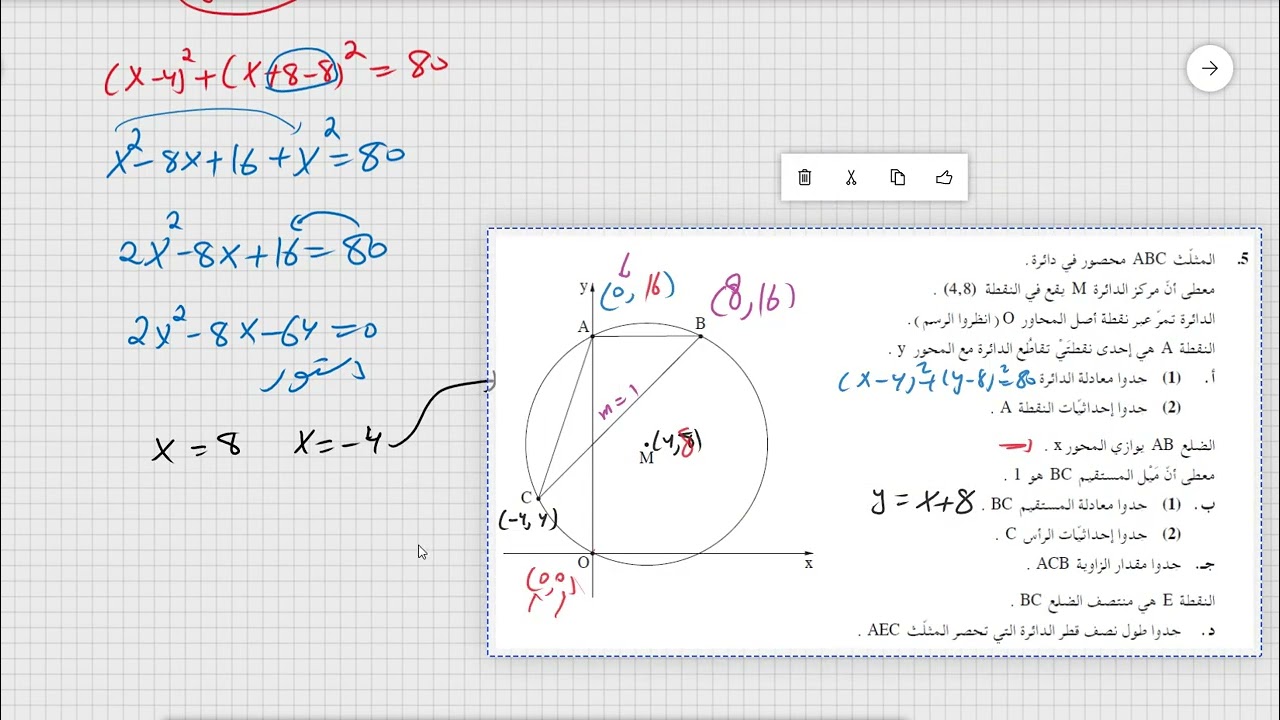 (x-4)²+(x+8-8)²=80
x²-8x+16+x²=80
2x²-8x+16=80
2x²-8x-64=0
دستور
x=8 x=-4
5. المثلّث ABC محصور في دائرة.
معطى أنّ مركز الدائرة M يقع في النقطة (4,8).
الدائرة تمرّ عبر نقطة أصل المحاور O (انظروا الرسم).
النقطة A هي إحدى نقطتَيْ تقاطُع الدائرة مع المحور y.
أ. (1) حدوا معادلة الدائرة (x-4)²+(y-8)²=80
(2) حدوا إحداثيّات النقطة A.
الضلع AB يوازي المحور x.
معطى أنّ مَيْل المستقيم BC هو 1.
ب. (1) حدوا معادلة المستقيم BC. y=x+8
(2) حدوا إحداثيّات الرأس C.
جـ. حدوا مقدار الزاوية ACB.
النقطة E هي منتصف الضلع BC.
د. حدوا طول نصف قطر الدائرة التي تحصر المثلّث AEC.
y
(0,16) (8,16)
A B
m=1
(4,8)
M
C
(-4,4)
O x
(0,0)